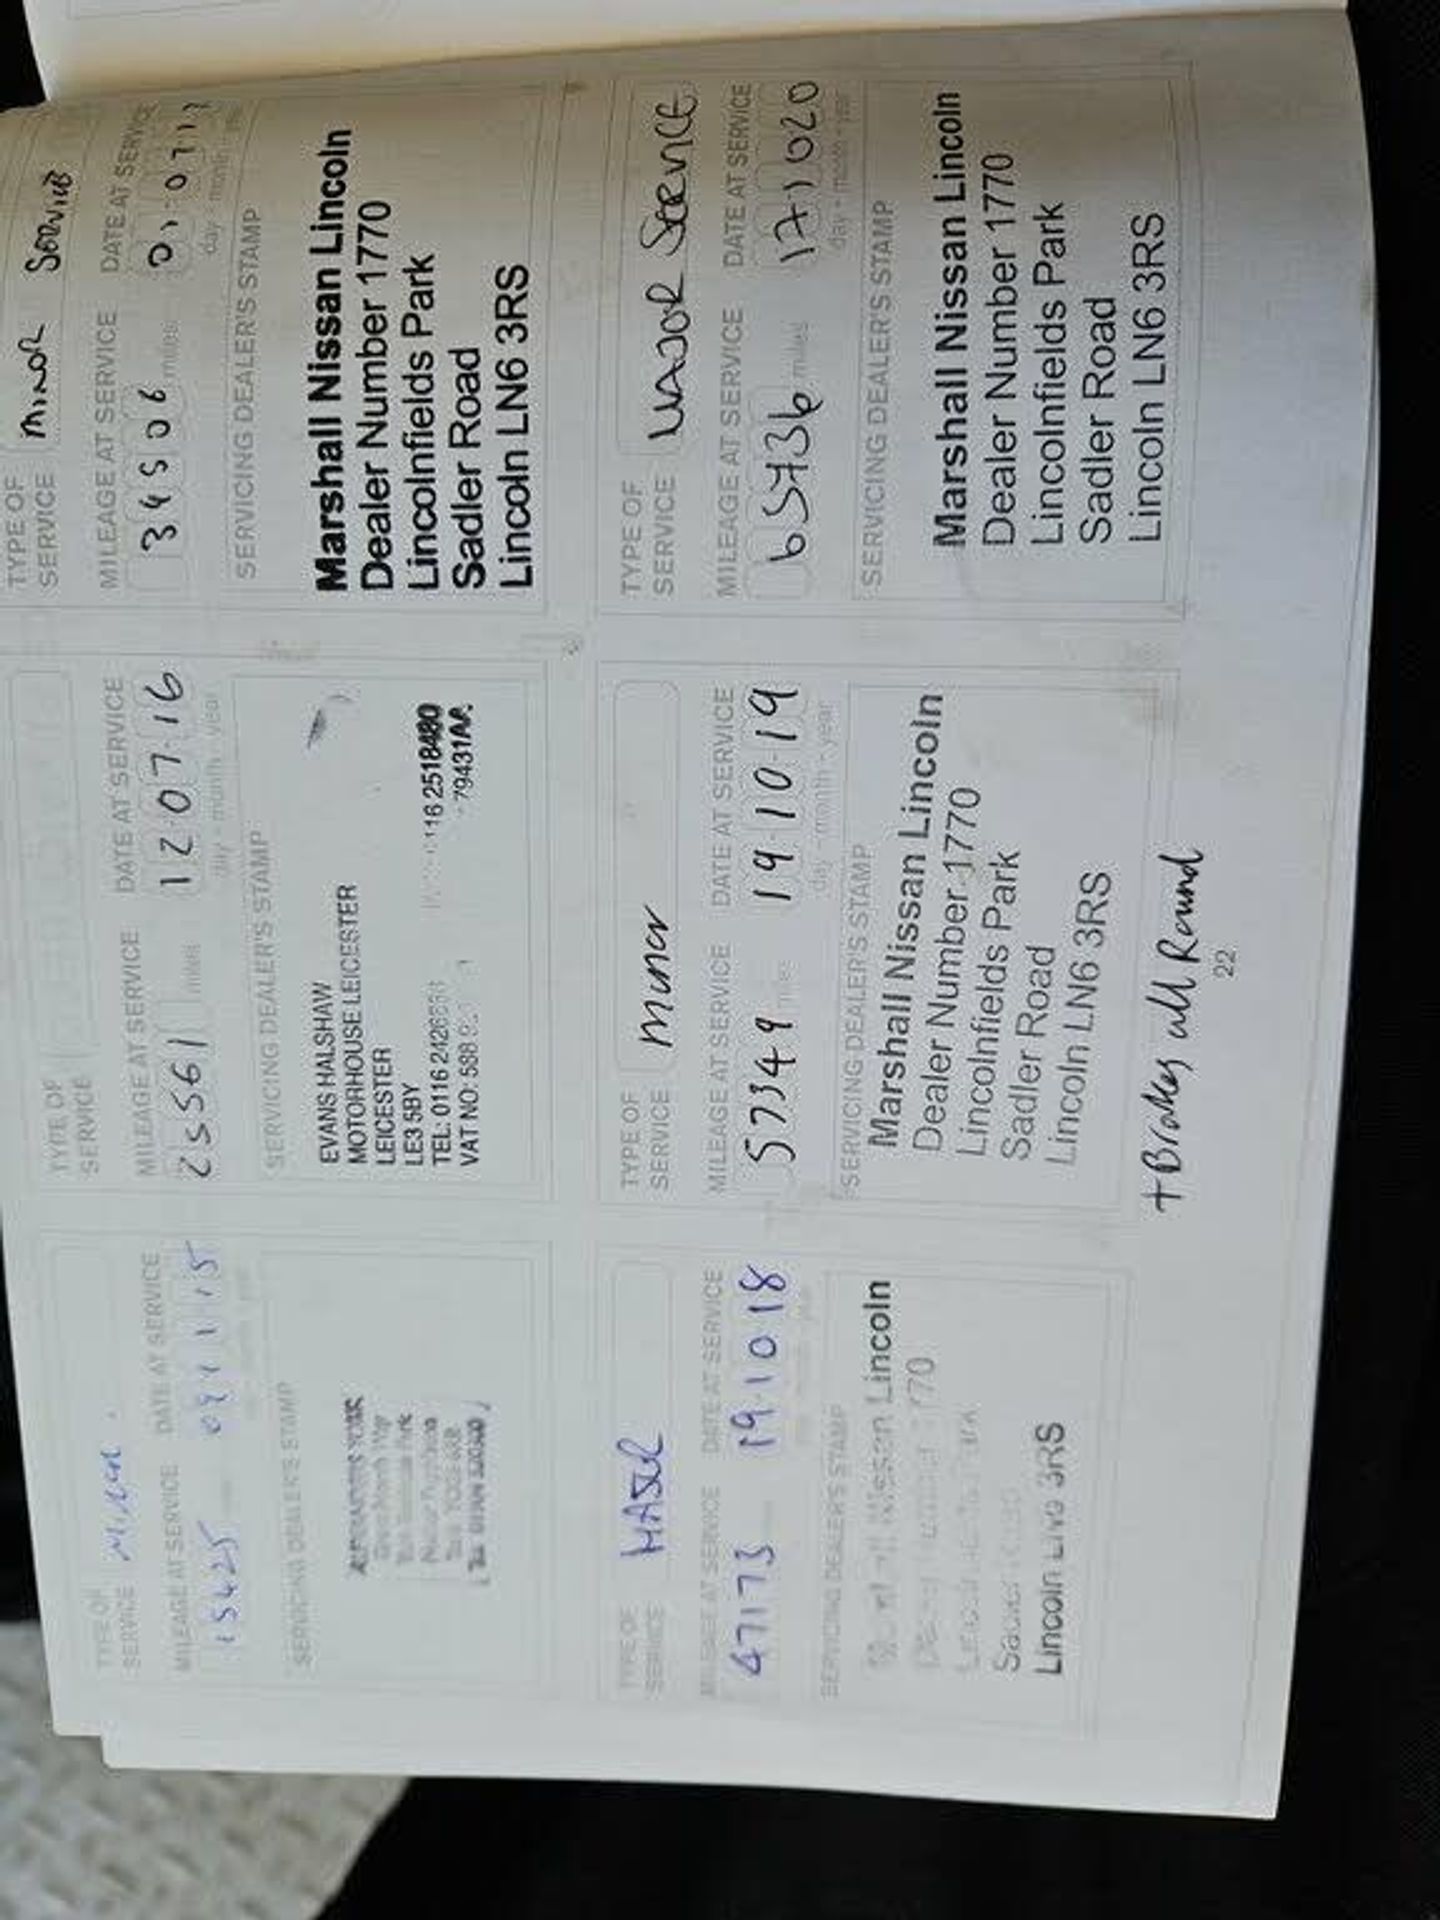 TYPE OF
SERVICE Minor
MILEAGE AT SERVICE DATE AT SERVICE
15425 091115
SERVICING DEALER'S STAMP
TYPE OF
SERVICE
MILEAGE AT SERVICE DATE AT SERVICE
25561 miles 12 07 16
day - month - year
SERVICING DEALER'S STAMP
EVANS HALSHAW
MOTORHOUSE LEICESTER
LEICESTER
LE3 5BY
TEL: 0116
VAT NO: 588
116 2518480
79431AA
TYPE OF
SERVICE MINOR SERVICE
MILEAGE AT SERVICE DATE AT SERVICE
34506 miles 01 07 17
day - month - year
SERVICING DEALER'S STAMP
Marshall Nissan Lincoln
Dealer Number 1770
Lincolnfields Park
Sadler Road
Lincoln LN6 3RS
TYPE OF
SERVICE MAJOR
MILEAGE AT SERVICE DATE AT SERVICE
47173 19 10 18
SERVICING DEALER'S STAMP
Nissan Lincoln
Lincoln LN6 3RS
TYPE OF
SERVICE Minor
MILEAGE AT SERVICE DATE AT SERVICE
57349 miles 19 10 19
day - month - year
SERVICING DEALER'S STAMP
Marshall Nissan Lincoln
Dealer Number 1770
Lincolnfields Park
Sadler Road
Lincoln LN6 3RS
+ Brakes all Round
TYPE OF
SERVICE MAJOR SERVICE
MILEAGE AT SERVICE DATE AT SERVICE
65736 miles 171020
day - month - year
SERVICING DEALER'S STAMP
Marshall Nissan Lincoln
Dealer Number 1770
Lincolnfields Park
Sadler Road
Lincoln LN6 3RS
22